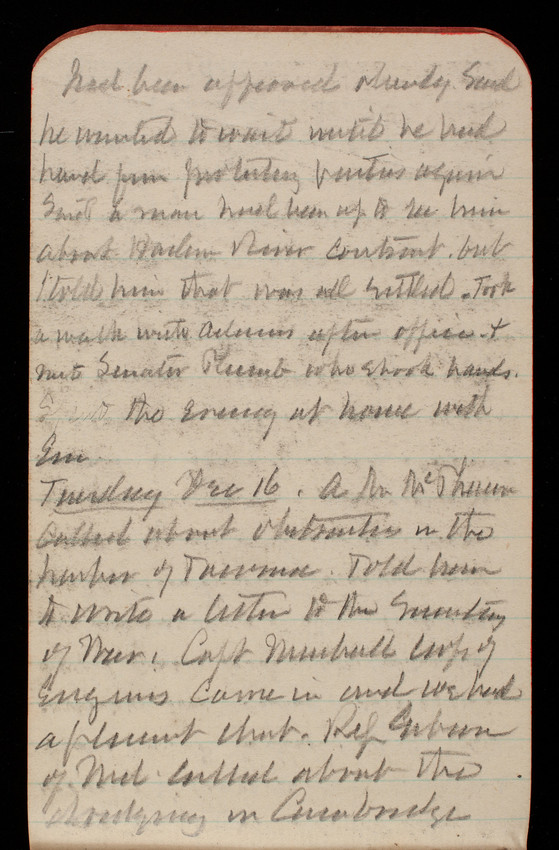 had been approved already. Said
he wanted to wait until he had
heard from protesting parties again
Said a man had been up to see him
about Harlem River contract but
I told him that was all settled. Took
a walk with Adams after office &
met Senator Plumb who shook hands.
Spent the evening at home with
Em.
Tuesday Dec 16. A Mr
called about obstruction in the
harbor of Tacoma. Told him
to write a letter to the Secretary
of War. Capt Marshall Corps of
Engineers came in and we had
a pleasant chat. Rep Gibson
of Md. called about the
dredging in Cambridge